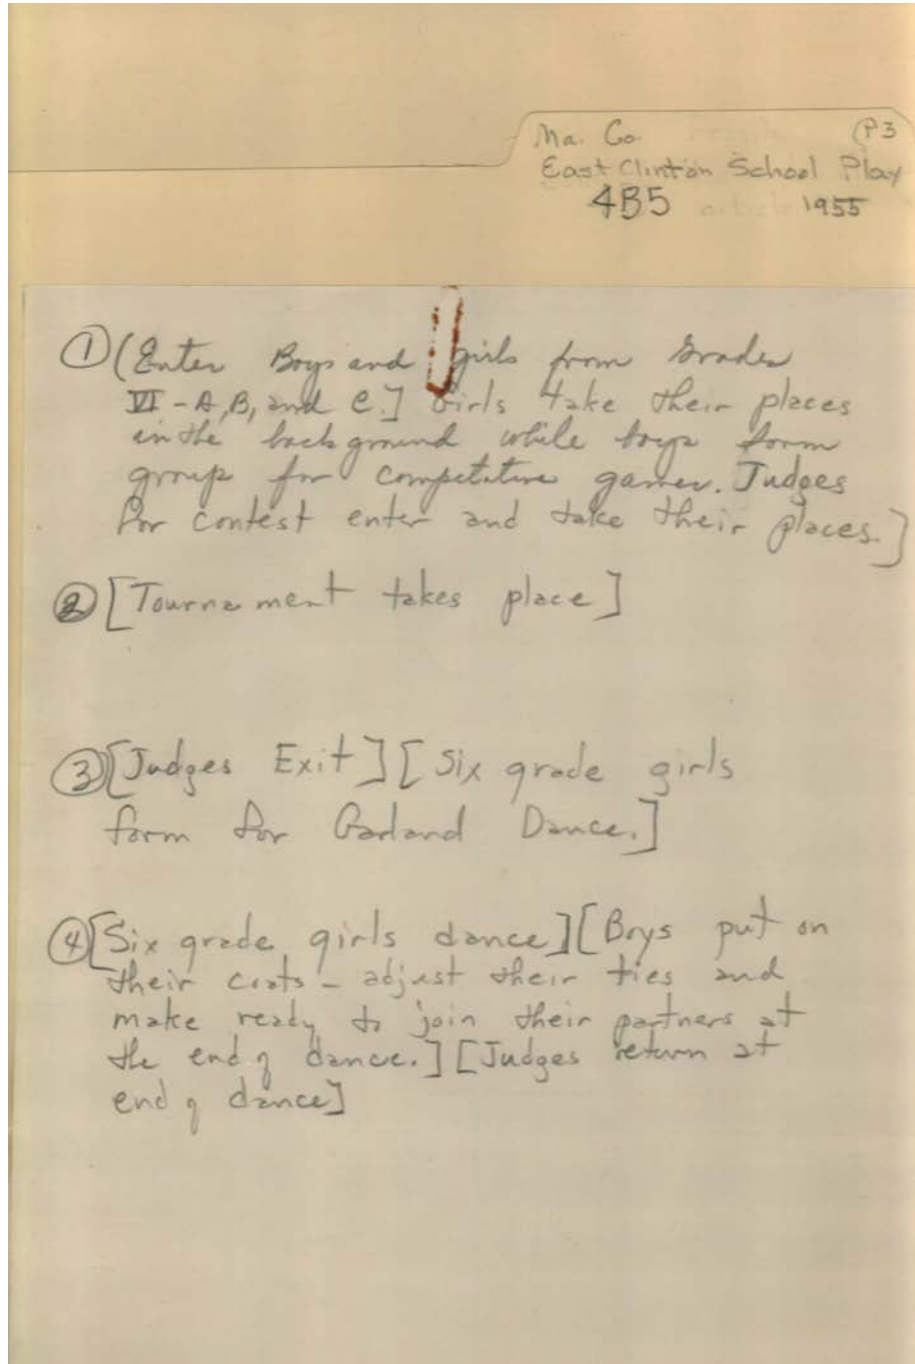 Ma. Co. P3
East Clinton School Play
4B5 1955
① (Enter Boys and girls from Grades
VI - A, B, and C.] Girls take their places
in the background while boys form
group for competitive games. Judges
for contest enter and take their places.]
② [Tournament takes place]
③ [Judges Exit] [Six grade girls
form for Garland Dance.]
④ [Six grade girls dance] [Boys put on
their coats - adjust their ties and
make ready to join their partners at
the end of dance.] [Judges return at
end of dance]